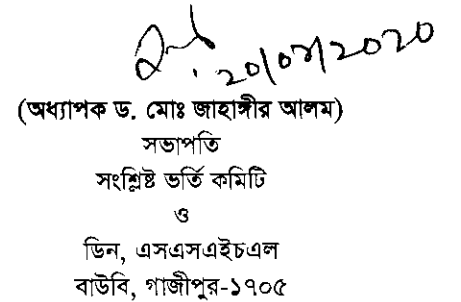 20/07/2020
(অধ্যাপক ড. মোঃ জাহাঙ্গীর আলম)
সভাপতি
সংশ্লিষ্ট ভর্তি কমিটি
ও
ডিন, এসএসএইচএল
বাউবি, গাজীপুর-১৭০৫